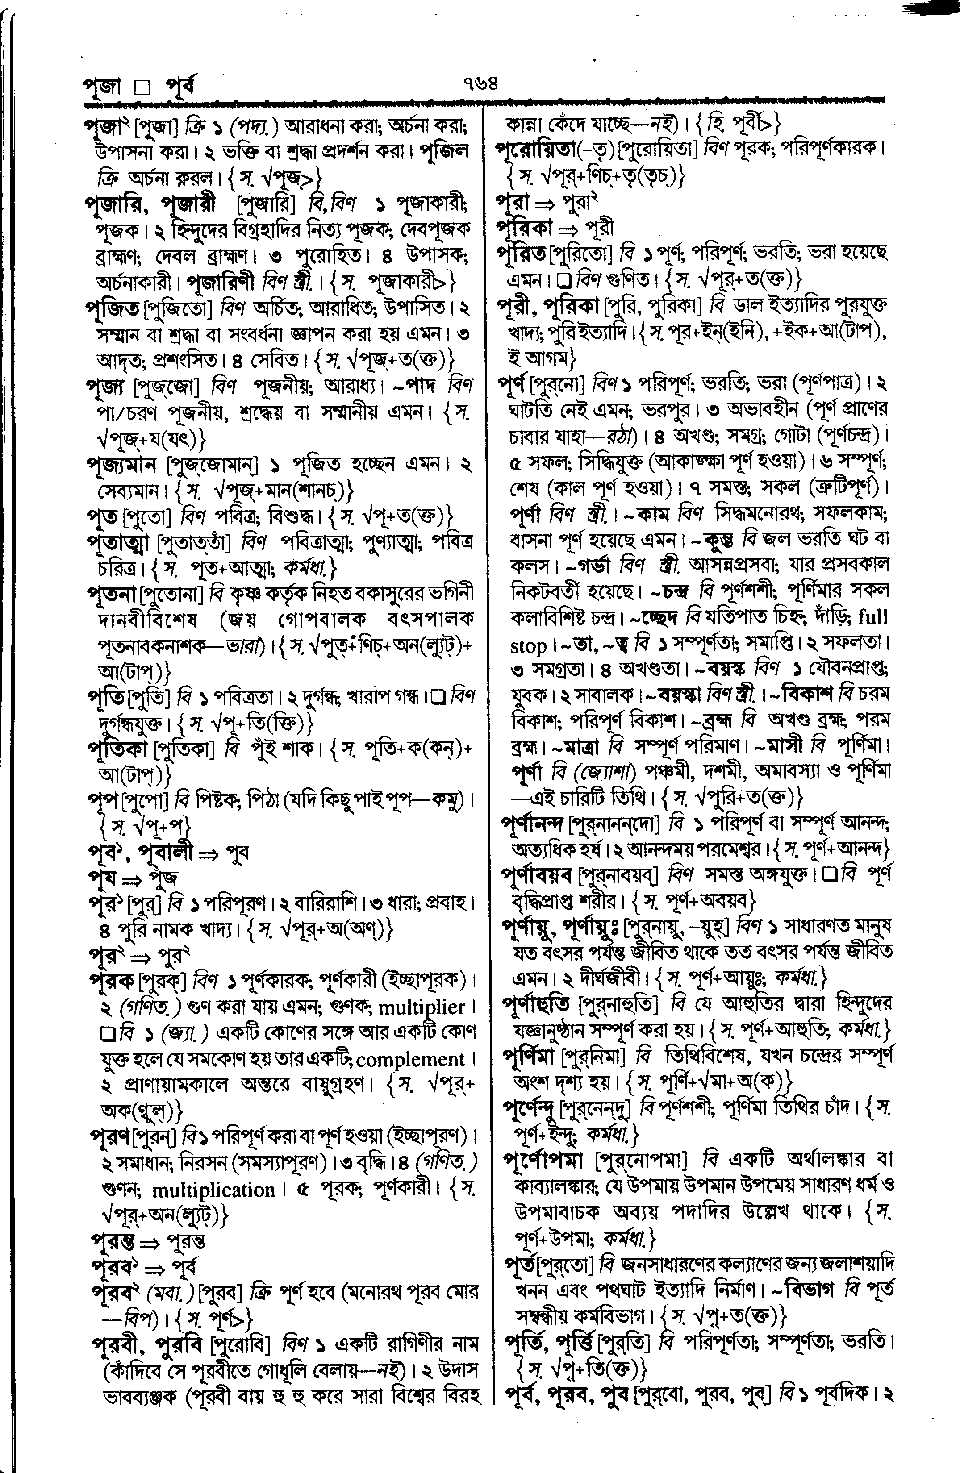 পূজা □ পূর্ব
৭৬৪
পূজা২ [পুজা] ক্রি ১ (পদ্য.) আরাধনা করা; অর্চনা করা;
উপাসনা করা। ২ ভক্তি বা শ্রদ্ধা প্রদর্শন করা। পূজিল
ক্রি অর্চনা করল। {স. √পূজ্>}
পূজারি, পূজারী [পুজারি] বি,বিণ ১ পূজাকারী;
পূজক। ২ হিন্দুদের বিগ্রহাদির নিত্য পূজক; দেবপূজক
ব্রাহ্মণ; দেবল ব্রাহ্মণ। ৩ পুরোহিত। ৪ উপাসক;
অর্চনাকারী। পূজারিণী বিণ স্ত্রী.। {স. পূজাকারী>}
পূজিত [পুজিতো] বিণ অর্চিত; আরাধিত; উপাসিত। ২
সম্মান বা শ্রদ্ধা বা সংবর্ধনা জ্ঞাপন করা হয় এমন। ৩
আদৃত; প্রশংসিত। ৪ সেবিত। {স. √পূজ্+ত(ক্ত)}
পূজ্য [পুজ্‌জো] বিণ পূজনীয়; আরাধ্য। ~পাদ বিণ
পা/চরণ পূজনীয়, শ্রদ্ধেয় বা সম্মানীয় এমন। {স.
√পূজ্+য(যৎ)}
পূজ্যমান [পুজ্‌জোমান্] ১ পূজিত হচ্ছেন এমন। ২
সেব্যমান। {স. √পূজ্+মান(শানচ্)}
পূত [পুতো] বিণ পবিত্র; বিশুদ্ধ। {স. √পূ+ত(ক্ত)}
পূতাত্মা [পুতাত্‌তাঁ] বিণ পবিত্রাত্মা; পুণ্যাত্মা; পবিত্র
চরিত্র। {স. পূত+আত্মা; কর্মধা.}
পূতনা [পুতোনা] বি কৃষ্ণ কর্তৃক নিহত বকাসুরের ভগিনী
দানবীবিশেষ (জয় গোপবালক বৎসপালক
পূতনাবকনাশক—ভারা)। {স. √পূত্+ণিচ্+অন(ল্যুট্)+
আ(টাপ্)}
পূতি [পুতি] বি ১ পবিত্রতা। ২ দুর্গন্ধ; খারাপ গন্ধ। □ বিণ
দুর্গন্ধযুক্ত। {স. √পূ+তি(ক্তি)}
পূতিকা [পুতিকা] বি পুঁই শাক। {স. পূতি+ক(কন্)+
আ(টাপ্)}
পূপ [পুপো] বি পিষ্টক; পিঠা (যদি কিছু পাই পূপ—কমু)।
{স. √পূ+প}
পূব১, পূবালী ⇒ পুব
পূয ⇒ পুঁজ
পূর১ [পুর্] বি ১ পরিপূরণ। ২ বারিরাশি। ৩ ধারা; প্রবাহ।
৪ পুরি নামক খাদ্য। {স. √পূর্+অ(অণ্)}
পূর২ ⇒ পুর২
পূরক [পুরক্] বিণ ১ পূর্ণকারক; পূর্ণকারী (ইচ্ছাপূরক)।
২ (গণিত.) গুণ করা যায় এমন; গুণক; multiplier।
□ বি ১ (জ্যা.) একটি কোণের সঙ্গে আর একটি কোণ
যুক্ত হলে যে সমকোণ হয় তার একটি; complement।
২ প্রাণায়ামকালে অন্তরে বায়ুগ্রহণ। {স. √পূর্+
অক(ণ্বুল্)}
পূরণ [পুরন্] বি ১ পরিপূর্ণ করা বা পূর্ণ হওয়া (ইচ্ছাপূরণ)।
২ সমাধান; নিরসন (সমস্যাপূরণ)। ৩ বৃদ্ধি। ৪ (গণিত.)
গুণন; multiplication। ৫ পূরক; পূর্ণকারী। {স.
√পূর্+অন(ল্যুট্)}
পূরন্ত ⇒ পুরন্ত
পূরব১ ⇒ পূর্ব
পূরব২ (মবা.) [পুরব] ক্রি পূর্ণ হবে (মনোরথ পূরব মোর
—বিপ)। {স. পূর্ণ>}
পূরবী, পূরবি [পুরোবি] বিণ ১ একটি রাগিণীর নাম
(কাঁদিবে সে পূরবীতে গোধূলি বেলায়—নই)। ২ উদাস
ভাবব্যঞ্জক (পূরবী বায় হু হু করে সারা বিশ্বের বিরহ
কান্না কেঁদে যাচ্ছে—নই)। {হি. পূর্বী>}
পূরোয়িতা(-তৃ) [পুরোয়িতা] বিণ পূরক; পরিপূর্ণকারক।
{স. √পূর্+ণিচ্+তৃ(তৃচ্)}
পূরা ⇒ পুরা২
পূরিকা ⇒ পূরী
পূরিত [পুরিতো] বি ১ পূর্ণ; পরিপূর্ণ; ভরতি; ভরা হয়েছে
এমন। □ বিণ গুণিত। {স. √পূর্+ত(ক্ত)}
পূরী, পূরিকা [পুরি, পুরিকা] বি ডাল ইত্যাদির পুরযুক্ত
খাদ্য; পুরি ইত্যাদি। {স. পূর+ইন্(ইনি), +ইক+আ(টাপ্),
ই আগম}
পূর্ণ [পুর্‌নো] বিণ ১ পরিপূর্ণ; ভরতি; ভরা (পূর্ণপাত্র)। ২
ঘাটতি নেই এমন; ভরপুর। ৩ অভাবহীন (পূর্ণ প্রাণের
চাবার যাহা—রঠা)। ৪ অখণ্ড; সমগ্র; গোটা (পূর্ণচন্দ্র)।
৫ সফল; সিদ্ধিযুক্ত (আকাঙ্ক্ষা পূর্ণ হওয়া)। ৬ সম্পূর্ণ;
শেষ (কাল পূর্ণ হওয়া)। ৭ সমস্ত; সকল (ত্রুটিপূর্ণ)।
পূর্ণা বিণ স্ত্রী.। ~কাম বিণ সিদ্ধমনোরথ; সফলকাম;
বাসনা পূর্ণ হয়েছে এমন। ~কুম্ভ বি জল ভরতি ঘট বা
কলস। ~গর্ভা বিণ স্ত্রী. আসন্নপ্রসবা; যার প্রসবকাল
নিকটবর্তী হয়েছে। ~চন্দ্র বি পূর্ণশশী; পূর্ণিমার সকল
কলাবিশিষ্ট চন্দ্র। ~চ্ছেদ বি যতিপাত চিহ্ন; দাঁড়ি; full
stop। ~তা, ~ত্ব বি ১ সম্পূর্ণতা; সমাপ্তি। ২ সফলতা।
৩ সমগ্রতা। ৪ অখণ্ডতা। ~বয়স্ক বিণ ১ যৌবনপ্রাপ্ত;
যুবক। ২ সাবালক। ~বয়স্কা বিণ স্ত্রী.। ~বিকাশ বি চরম
বিকাশ; পরিপূর্ণ বিকাশ। ~ব্রহ্ম বি অখণ্ড ব্রহ্ম; পরম
ব্রহ্ম। ~মাত্রা বি সম্পূর্ণ পরিমাণ। ~মাসী বি পূর্ণিমা।
পূর্ণা বি (জ্যোশা) পঞ্চমী, দশমী, অমাবস্যা ও পূর্ণিমা
—এই চারিটি তিথি। {স. √পূরি+ত(ক্ত)}
পূর্ণানন্দ [পুর্‌নানন্‌দো] বি ১ পরিপূর্ণ বা সম্পূর্ণ আনন্দ;
অত্যধিক হর্ষ। ২ আনন্দময় পরমেশ্বর। {স. পূর্ণ+আনন্দ}
পূর্ণাবয়ব [পুর্‌নাবয়ব্] বিণ সমস্ত অঙ্গযুক্ত। □ বি পূর্ণ
বৃদ্ধিপ্রাপ্ত শরীর। {স. পূর্ণ+অবয়ব}
পূর্ণায়ু, পূর্ণায়ুঃ [পুর্‌নায়ু, –য়ুহ্] বিণ ১ সাধারণত মানুষ
যত বৎসর পর্যন্ত জীবিত থাকে তত বৎসর পর্যন্ত জীবিত
এমন। ২ দীর্ঘজীবী। {স. পূর্ণ+আয়ুঃ; কর্মধা.}
পূর্ণাহুতি [পুর্‌নাহুতি] বি যে আহুতির দ্বারা হিন্দুদের
যজ্ঞানুষ্ঠান সম্পূর্ণ করা হয়। {স. পূর্ণ+আহুতি; কর্মধা.}
পূর্ণিমা [পুর্‌নিমা] বি তিথিবিশেষ, যখন চন্দ্রের সম্পূর্ণ
অংশ দৃশ্য হয়। {স. পূর্ণি+√মা+অ(ক)}
পূর্ণেন্দু [পুর্‌নেন্‌দু] বি পূর্ণশশী; পূর্ণিমা তিথির চাঁদ। {স.
পূর্ণ+ইন্দু; কর্মধা.}
পূর্ণোপমা [পুর্‌নোপমা] বি একটি অর্থালঙ্কার বা
কাব্যালঙ্কার; যে উপমায় উপমান উপমেয় সাধারণ ধর্ম ও
উপমাবাচক অব্যয় পদাদির উল্লেখ থাকে। {স.
পূর্ণ+উপমা; কর্মধা.}
পূর্ত [পুর্‌তো] বি জনসাধারণের কল্যাণের জন্য জলাশয়াদি
খনন এবং পথঘাট ইত্যাদি নির্মাণ। ~বিভাগ বি পূর্ত
সম্বন্ধীয় কর্মবিভাগ। {স. √পৃ+ত(ক্ত)}
পূর্তি, পূর্ত্তি [পুর্‌তি] বি পরিপূর্ণতা; সম্পূর্ণতা; ভরতি।
{স. √পৃ+তি(ক্ত)}
পূর্ব, পূরব, পুব [পুর্‌বো, পুরব, পুব্] বি ১ পূর্বদিক। ২